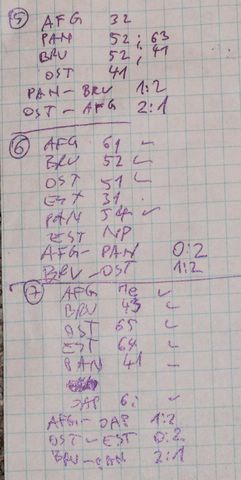 5 AFG 32
PAN 52; 63
BRU 52; 41
OST 41
PAN - BRU 1:2
OST - AFG 2:1
6 AFG 61
BRU 52
OST 51
EST 31
PAN 54
EST NP
AFG - PAN 0:2
BRU - OST 1:2
7 AFG
BRU 43
OST 65
EST 64
PAN 41
AFG - 1:2
OST - EST 0:2
BRU - 2:1